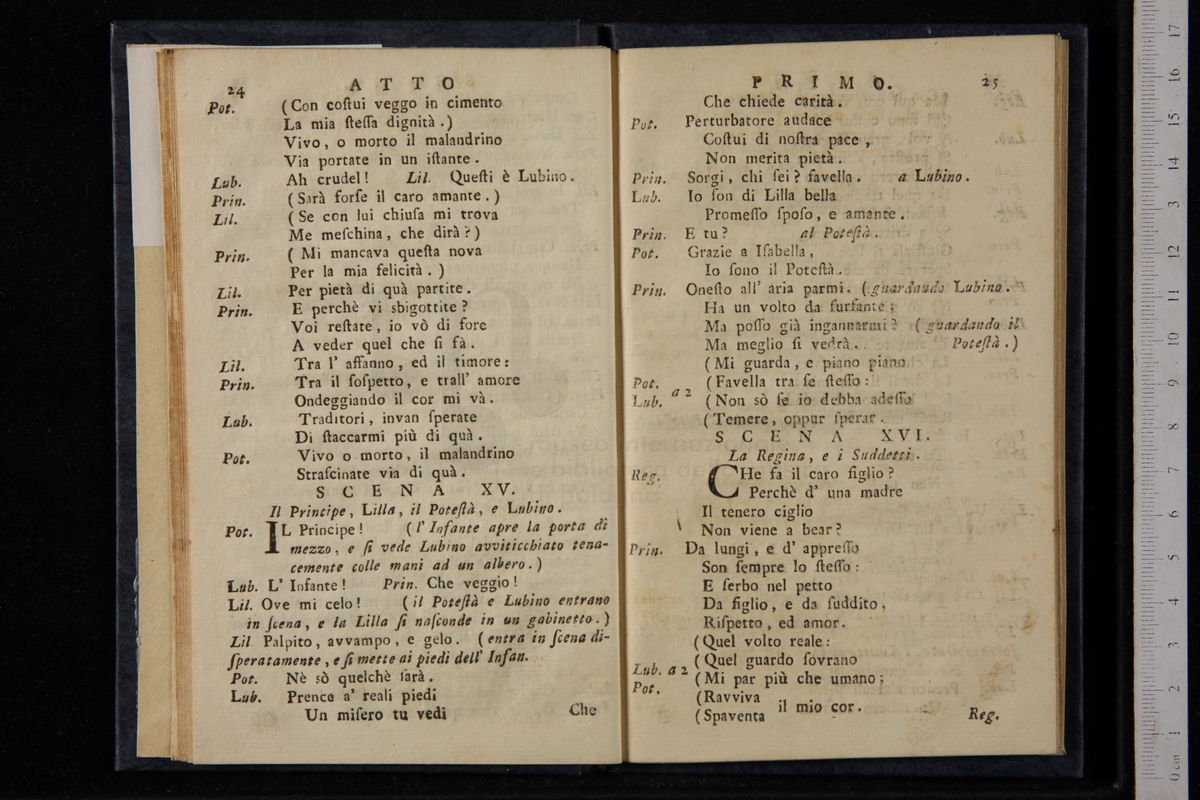 24 ATTO
Pot. (Con coſtui veggo in cimento
La mia ſteſſa dignità.)
Vivo, o morto il malandrino
Via portate in un iſtante.
Lub. Ah crudel! Lil. Queſti è Lubino.
Prin. (Sarà forſe il caro amante.)
Lil. (Se con lui chiuſa mi trova
Me meſchina, che dirà?)
Prin. (Mi mancava queſta nova
Per la mia felicità.)
Lil. Per pietà di quà partite.
Prin. E perchè vi sbigottite?
Voi reſtate, io vò di fore
A veder quel che ſi fà.
Lil. Tra l' affanno, ed il timore:
Prin. Tra il ſoſpetto, e trall' amore
Ondeggiando il cor mi và.
Lub. Traditori, invan ſperate
Di ſtaccarmi più di quà.
Pot. Vivo o morto, il malandrino
Straſcinate via di quà.
SCENA XV.
Il Principe, Lilla, il Poteſtà, e Lubino.
Pot. IL Principe! (l' Infante apre la porta di
mezzo, e ſi vede Lubino avviticchiato tena-
cemente colle mani ad un albero.)
Lub. L' Infante! Prin. Che veggio!
Lil. Ove mi celo! (il Poteſtà e Lubino entrano
in ſcena, e la Lilla ſi naſconde in un gabinetto.)
Lil Palpito, avvampo, e gelo. (entra in ſcena di-
ſperatamente, e ſi mette ai piedi dell' Infan.
Pot. Nè sò quelchè ſarà.
Lub. Prence a' reali piedi
Un miſero tu vedi
Che
PRIMO. 25
Che chiede carità.
Pot. Perturbatore audace
Coſtui di noſtra pace,
Non merita pietà.
Prin. Sorgi, chi ſei? favella. a Lubino.
Lub. Io ſon di Lilla bella
Promeſſo ſpoſo, e amante.
Prin. E tu? al Poteſtà.
Pot. Grazie a Iſabella,
Io ſono il Poteſtà.
Prin. Oneſto all' aria parmi. (guardando Lubino.
Ha un volto da furfante;
Ma poſſo già ingannarmi? (guardando il
Ma meglio ſi vedrà. Poteſtà.)
(Mi guarda, e piano piano
Pot. (Favella tra ſe ſteſſo:
Lub. a 2 (Non sò ſe io debba adeſſo
(Temere, oppur ſperar.
SCENA XVI.
La Regina, e i Suddetti.
Reg. CHe fa il caro figlio?
Perchè d' una madre
Il tenero ciglio
Non viene a bear?
Prin. Da lungi, e d' appreſſo
Son ſempre lo ſteſſo:
E ſerbo nel petto
Da figlio, e da ſuddito,
Riſpetto, ed amor.
(Quel volto reale:
Lub. a 2 (Quel guardo ſovrano
Pot. (Mi par più che umano;
(Ravviva il mio cor.
(Spaventa
Reg.